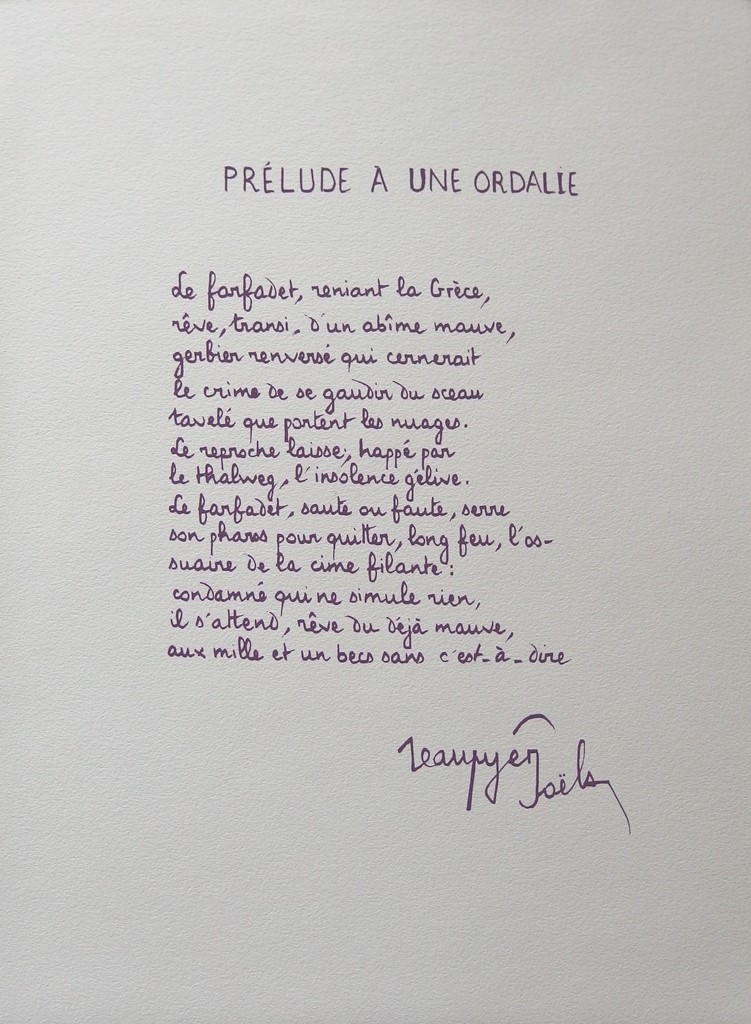 PRÉLUDE À UNE ORDALIE
Le farfadet, reniant la Grèce,
rêve, transi, d'un abîme mauve,
gerbier renversé qui cernerait
le crime de se gaudir du sceau
tavelé que portent les nuages.
Le reproche laisse, happé par
le thalweg, l'insolence gélive.
Le farfadet, saute ou faute, serre
son pharos pour quitter, long feu, l'os-
suaire de la cime filante :
condamné qui ne simule rien,
il s'attend, rêve du déjà mauve,
aux mille et un becs sans c'est-à-dire